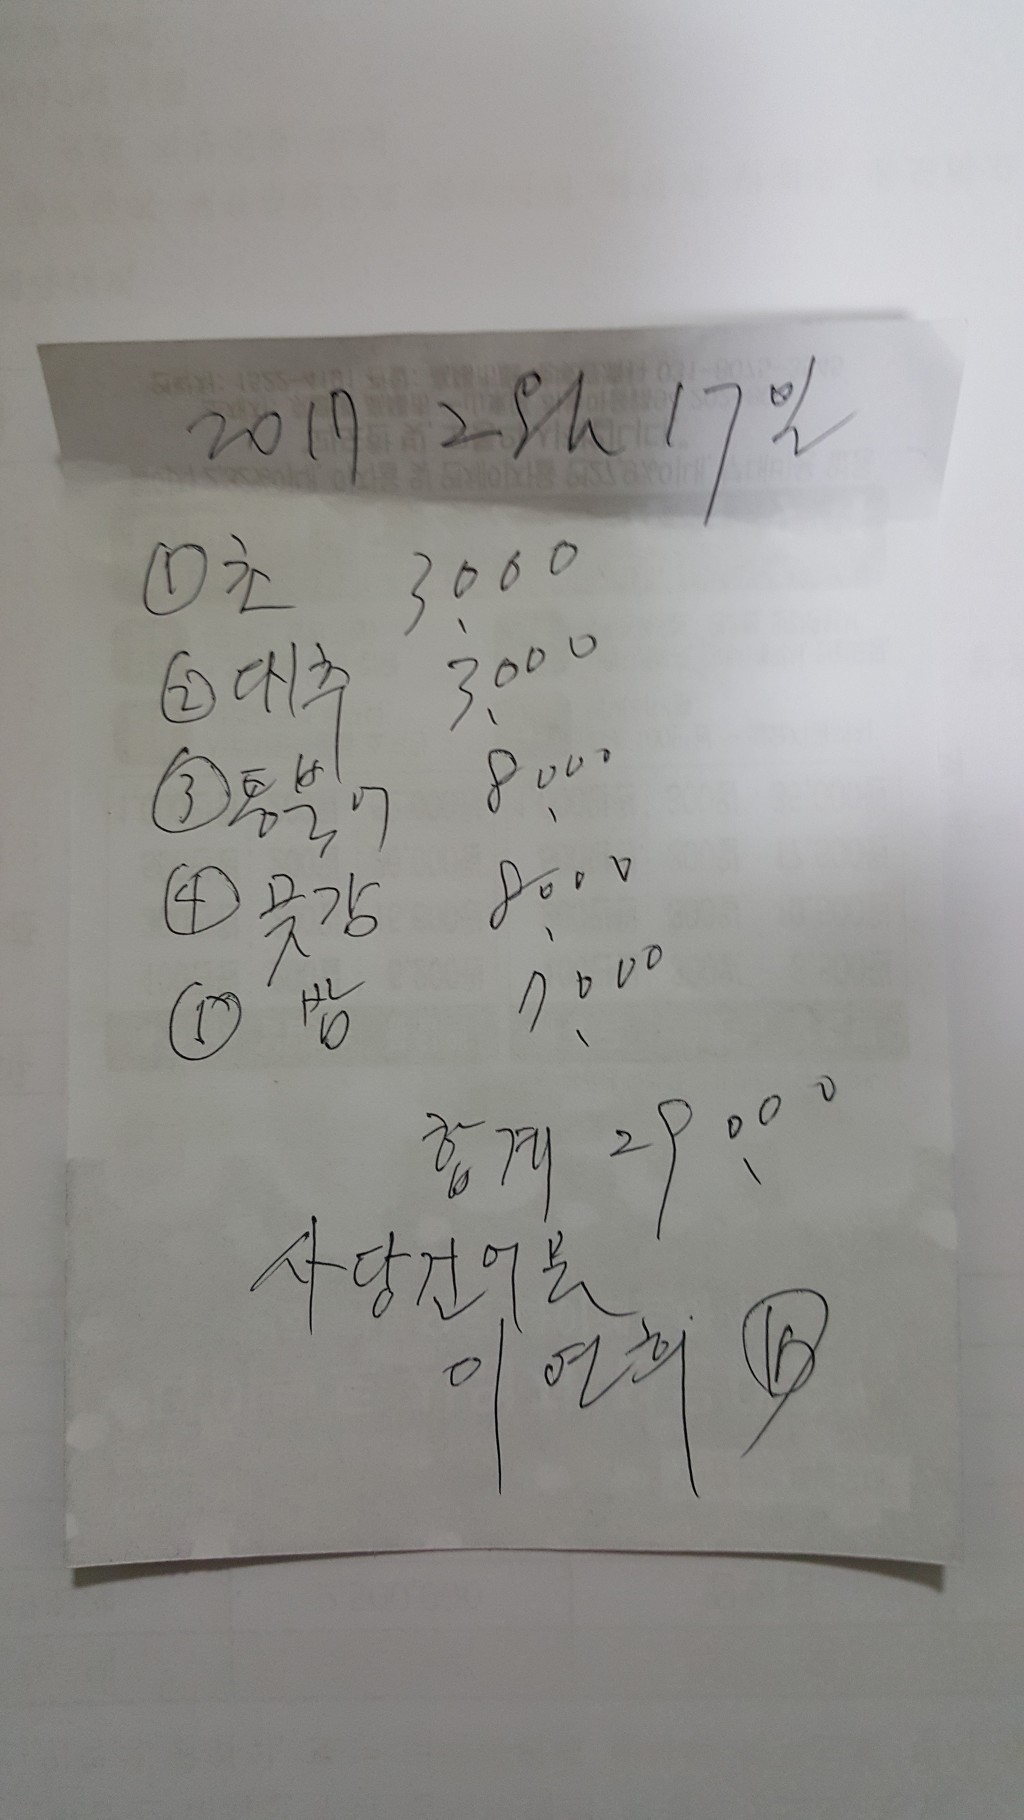 2017 2월 17일
① 초 3,000
② 대추 3,000
③ 통북어 8,000
④ 곶감 8,000
⑤ 밤 7,000
합계 29,000
사당건어물
이연희